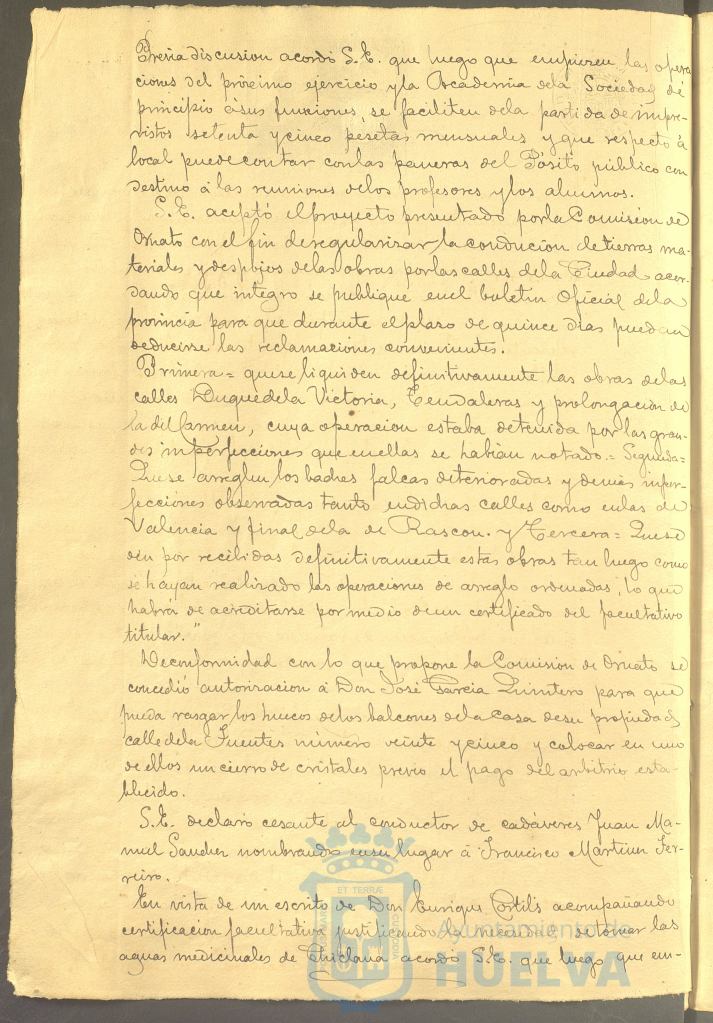 Previa discusion acordó S.E. que luego que empiezen las opera
ciones del próximo ejercicio y la Academia dela Sociedad dé
principio á sus funciones, se faciliten dela partida de impre-
vistos setenta y cinco pesetas mensuales y que respecto á
local puede contar con las paneras del Pósito público con
destino á las reuniones delos profesores y los alumnos.
S.E. aceptó el proyecto presentado por la Comision de
Ornato con el fin de regularizar la conducion de tierras ma-
teriales y despojos de las obras por las calles dela Ciudad acor-
dando que integro se publique en el boletin Oficial dela
provincia para que durante el plazo de quince dias puedan
deducirse las reclamaciones convenientes.
Primera = que se liquiden definitivamente las obras delas
calles Duque dela Victoria, Tendaleras y prolongacion de
la del Carmen, cuya operacion estaba detenida por las gran-
des imperfecciones que en ellas se habian notado. = Segunda =
Que se arreglen los badnes falcas deterioradas y demás imper-
fecciones observadas tanto en dichas calles como en las de
Valencia y final dela de Rascon. y Tercera = Que se
den por recibidas definitivamente estas obras tan luego como
se hayan realizado las operaciones de arreglo ordenadas, lo que
habrá de acreditarse por medio de un certificado del facultativo
titular."
De conformidad con lo que propone la Comision de Ornato se
concedió autorizacion á Don José Garcia Quintero para que
pueda rasgar los huecos delos balcones dela casa de su propiedad
calle dela Fuentes número veinte y cinco y colocar en uno
de ellos un cierro de cristales previo el pago del arbitrio esta-
blecido.
S.E. declaró cesante al conductor de cadáveres Juan Ma-
nuel Sanchez nombrando en su lugar á Francisco Martinez Fer-
reiro.
En vista de un escrito de Don Enrique Cortils acompañando
certificacion facultativa justificando la necesidad de tomar las
aguas medicinales de Chiclana acordó S.E. que luego que em-
ET TERRÆ
Ayuntamiento de
HUELVA